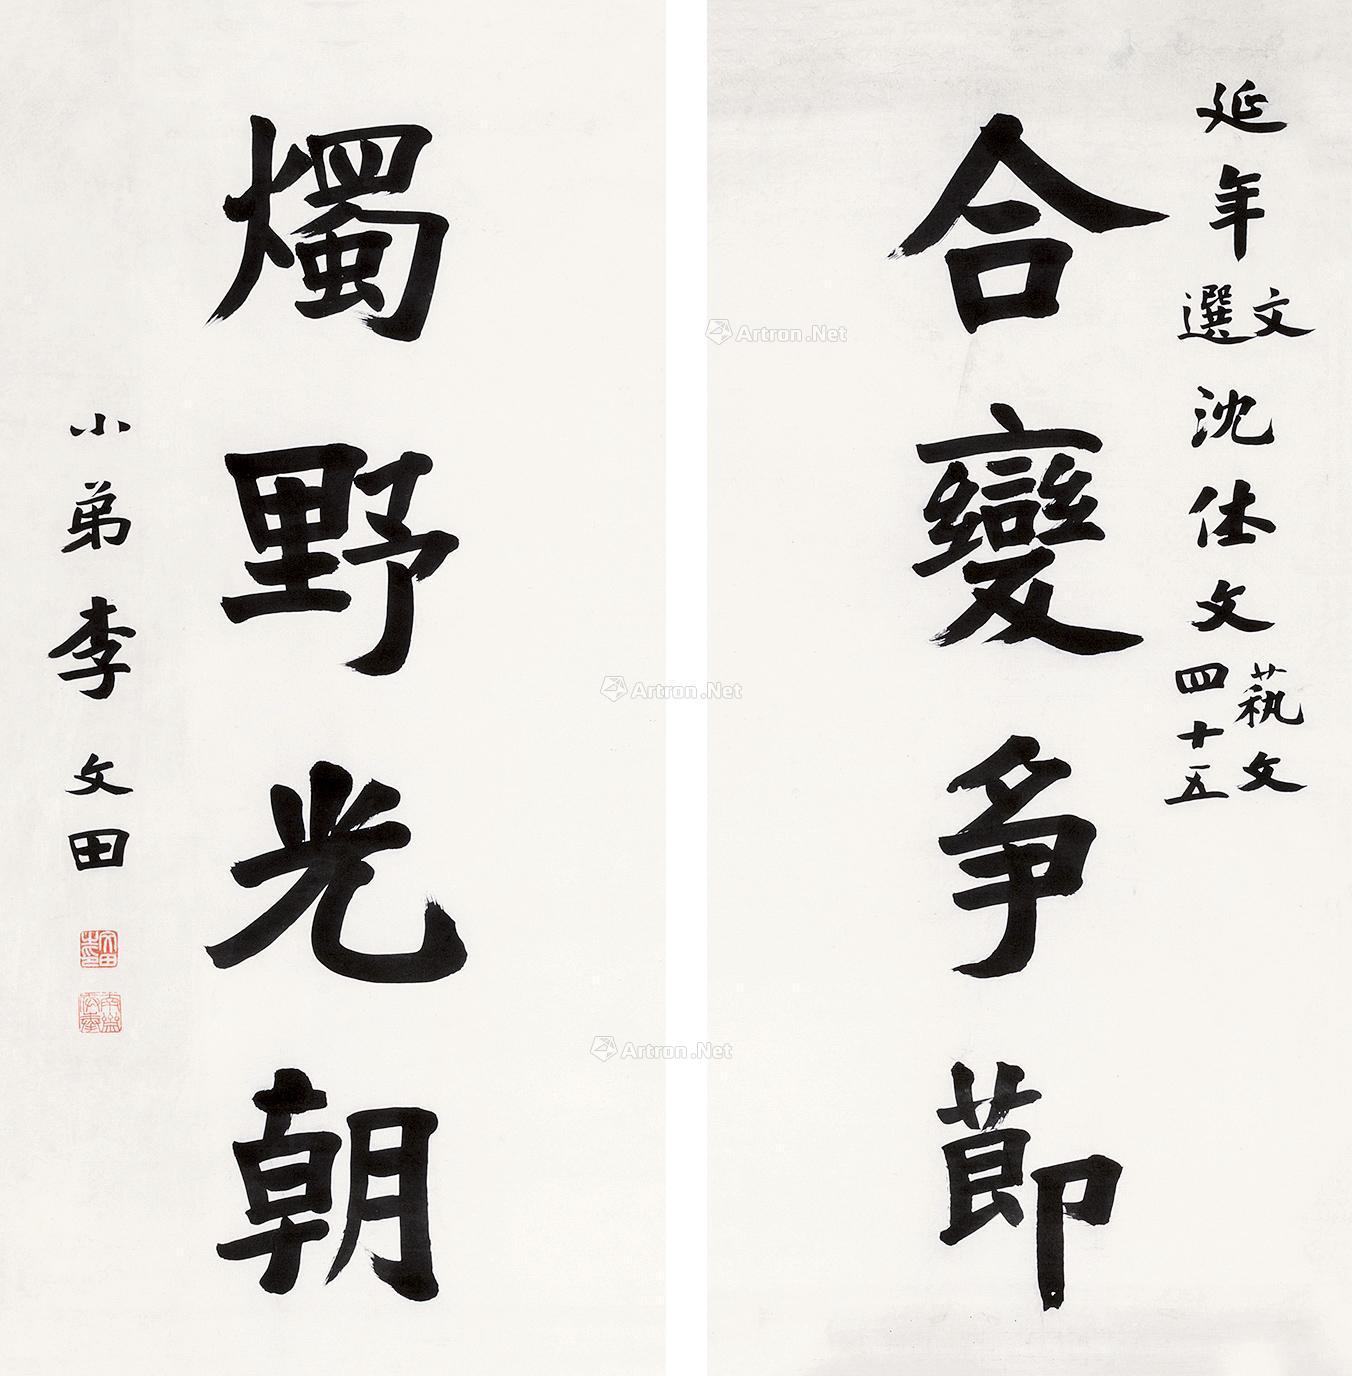 延年文選沈休文藝文四十五
合變争莭
燭野光朝
小弟李文田
Artron.Net
Artron.Net
Artron.Net